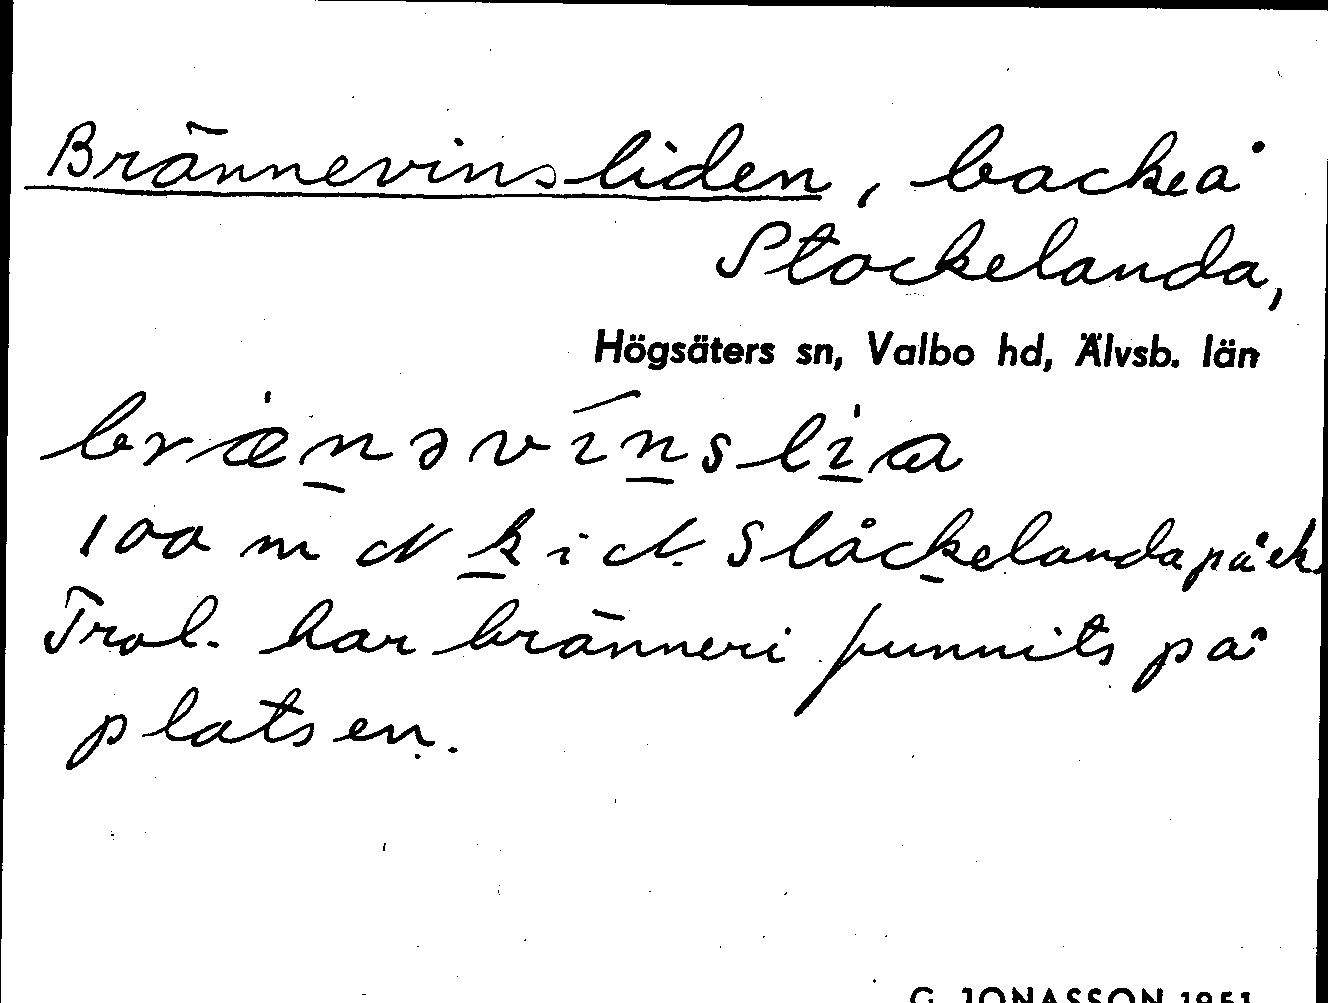 Brännevinsliden, backe å
Stockelanda,
Högsäters sn, Valbo hd, Älvsb. län
brænəvínslia
100 m N k i N. Slåckelanda på ek.
Trol. har bränneri funnits på
platsen.
G. JONASSON 1951